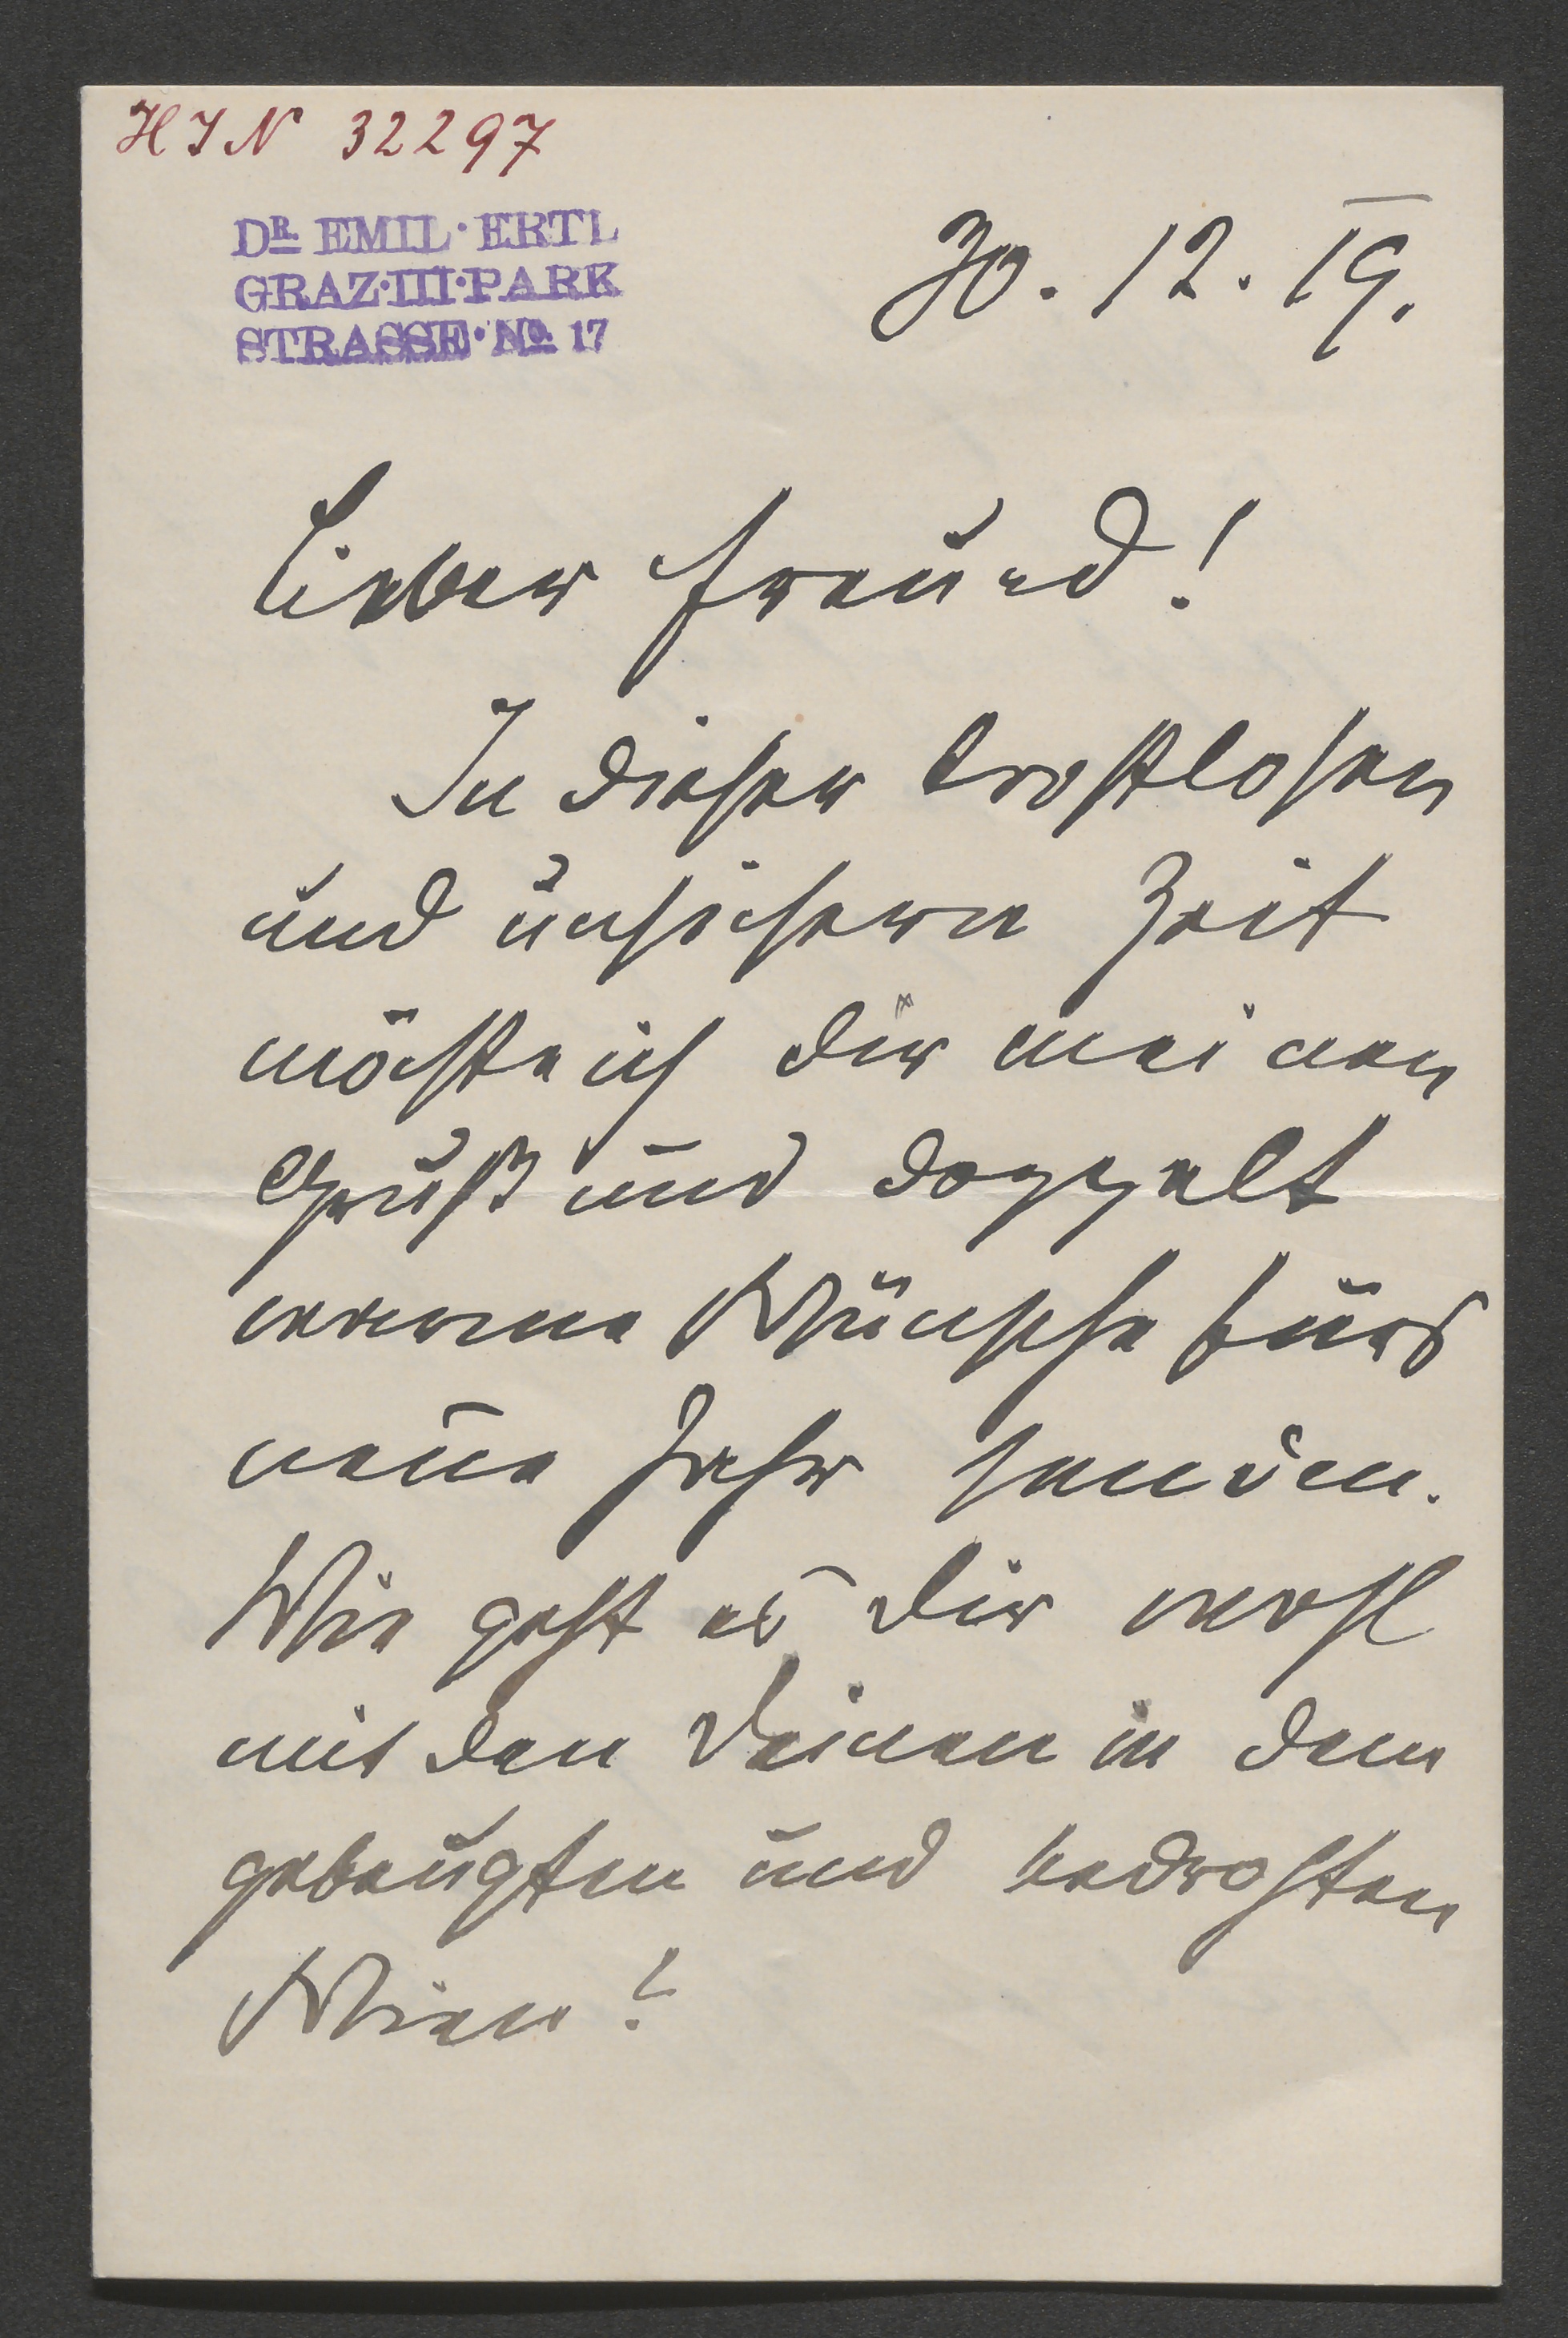 HIN 32297
DR. EMIL·ERTL
GRAZ·III·PARK
STRASSE·No. 17
30. 12. 19.
Lieber Freund!
In dieser trostlosen
und unsichern Zeit
möchte ich Dir meinen
Gruß und doppelt
warme Wünsche fürs
neue Jahr senden.
Wie geht es Dir wohl
mit den Deinen in dem
gebeugten und bedrohten
Wien?